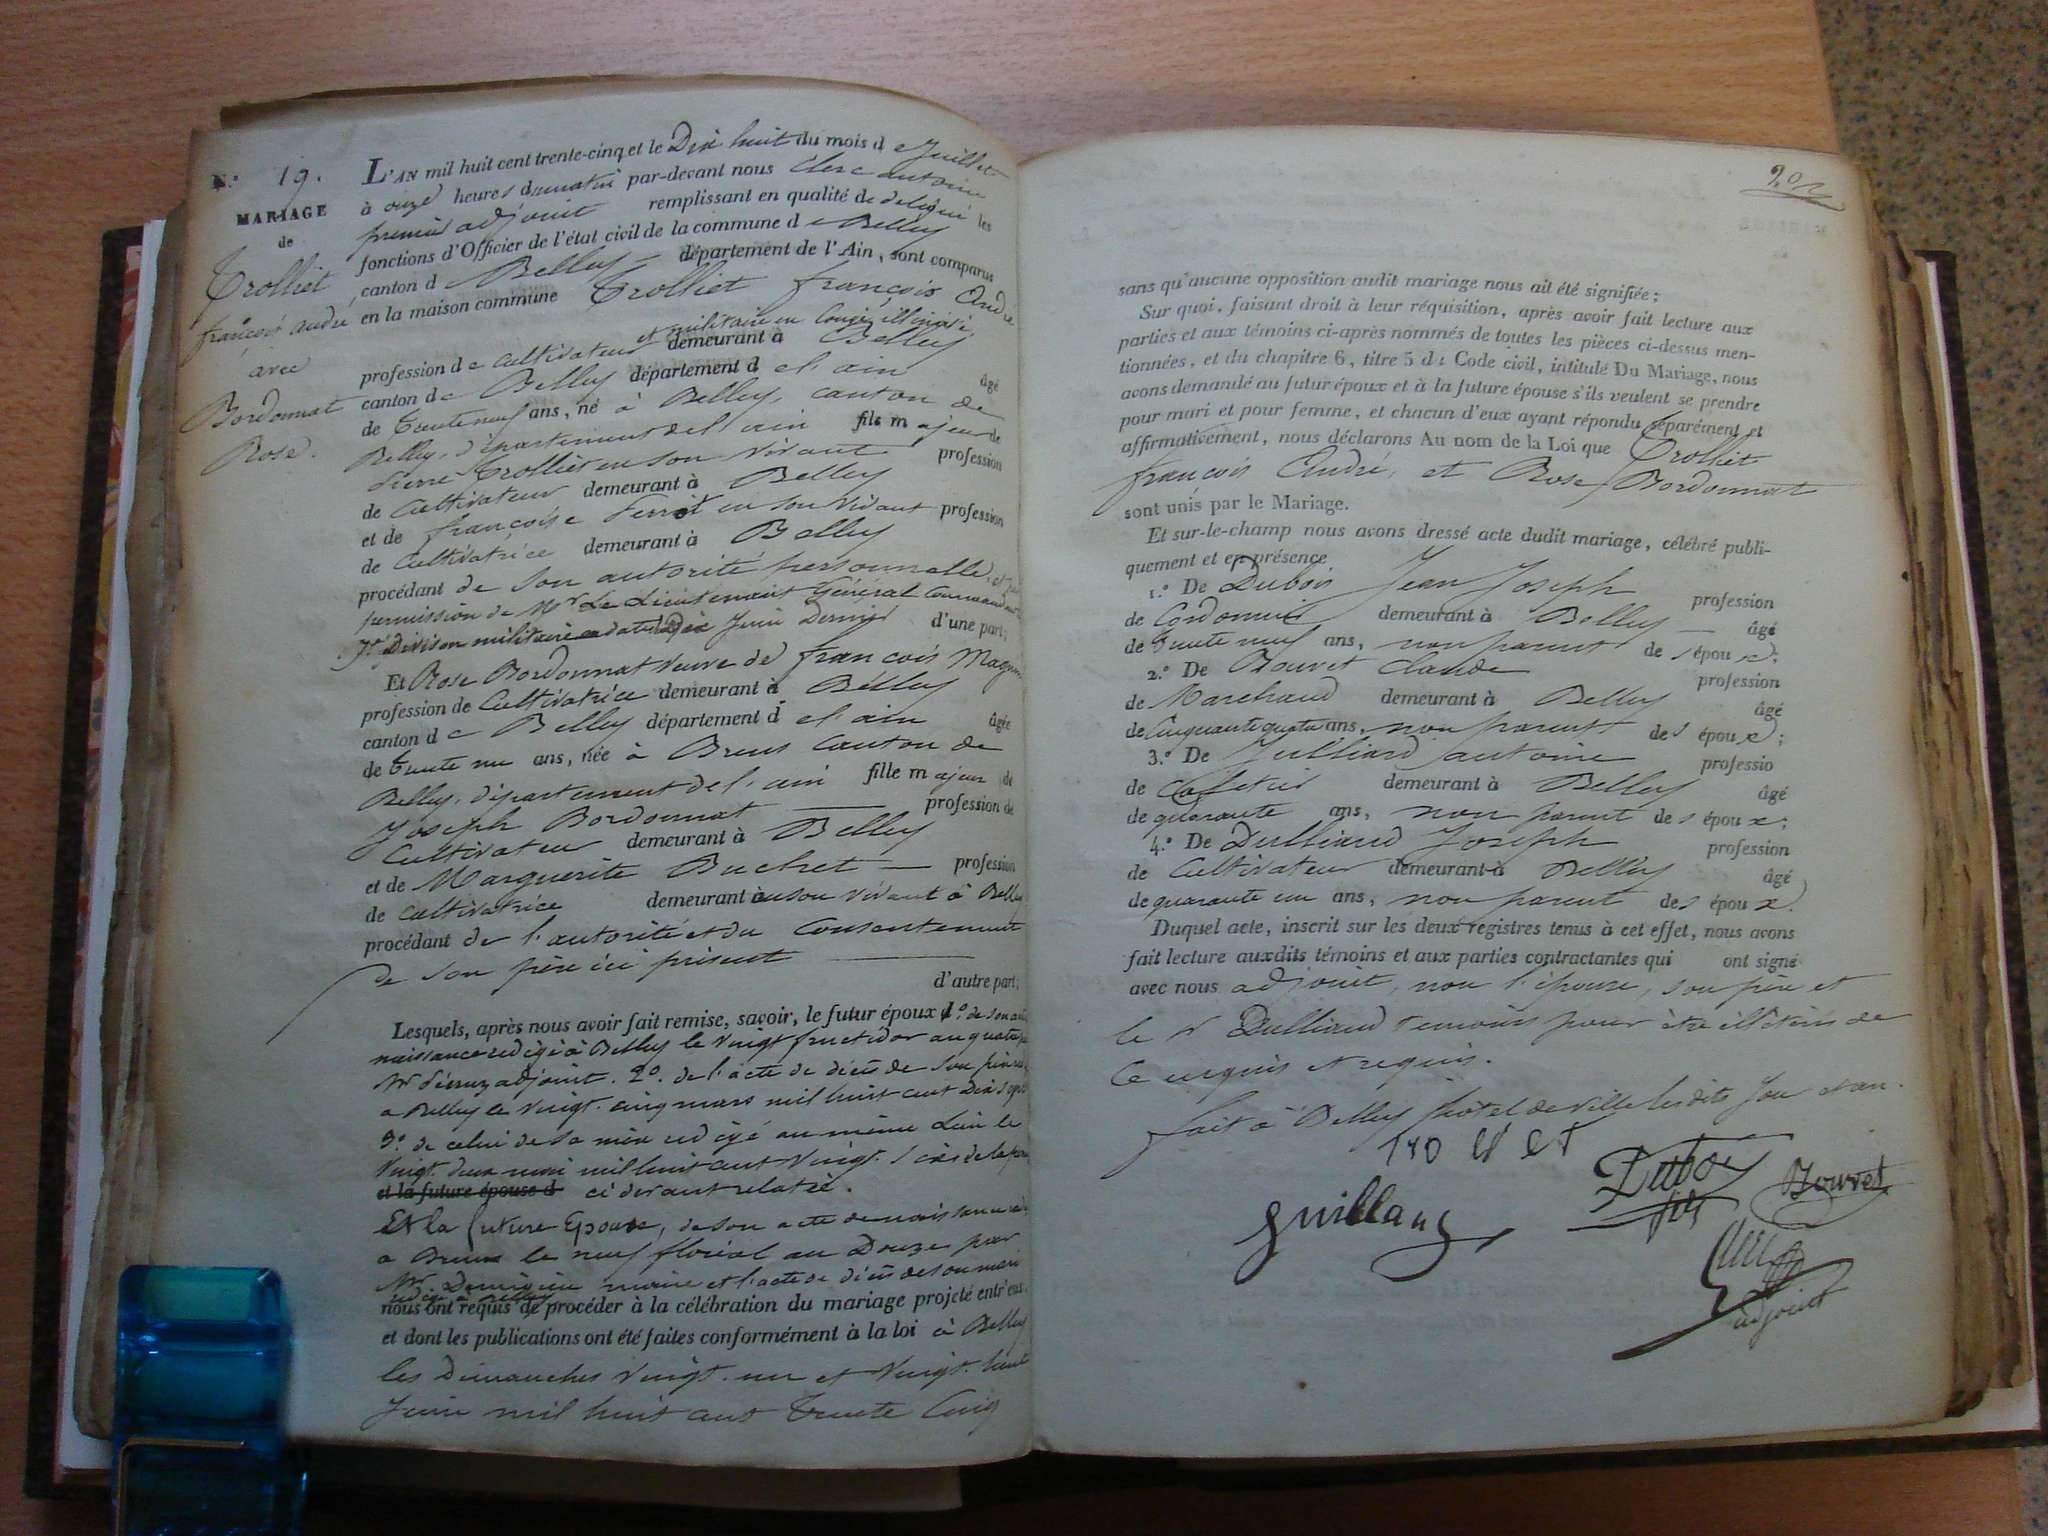 N.º 19.
MARIAGE
de
Trolliet
françois andré
avec
Bordonnat
Rose.
L'AN mil huit cent trente-cinq et le Dix huit du mois de Juillet
à onze heures du matin par-devant nous Clerc antoine
premier adjoint remplissant en qualité de délégué les
fonctions d'Officier de l'état civil de la commune de Belley
canton de Belley département de l'Ain, sont comparus
en la maison commune Trolliet françois André
et militaire en Congé illimité
profession de Cultivateur demeurant à Belley
canton de Belley département de l'ain âgé
de trente neuf ans, né à Belley, canton de
Belley, département de l'ain fils majeur de
Pierre Trolliet en son vivant profession
de Cultivateur demeurant à Belley
et de françoise Perret en son vivant profession
de Cultivatrice demeurant à Belley
procédant de son autorité personnelle, et
permission de Mr Le Lieutenant Général Commandant
7e Division militaire en date du Dix Juin Dernier d'une part;
Et Rose Bordonnat veuve de françois Magnin
profession de Cultivatrice demeurant à Belley
canton de Belley département de l'ain âgée
de trente un ans, née à Brens Canton de
Belley, département de l'ain fille majeur de
Joseph Bordonnat profession de
Cultivateur demeurant à Belley
et de Marguerite Buchet profession
de Cultivatrice demeurant à en son vivant à Belley
procédant de l'autorité et du Consentement
de son père ici présent
d'autre part;
Lesquels, après nous avoir fait remise, savoir, le futur époux 1º. de son
naissance rédigé à Belley le vingt fructidor an quatre
Mr adjoint. 2º. de l'acte de décès de son père
a Belley le vingt cinq mars mil huit cent Dix sept
3º. de celui de sa mère rédigé au même lieu le
vingt deux mai mil huit cent vingt six de la
et la future épouse d ci devant relatée.
Et la future Epouse, de son acte de naissance
a Brens le neuf floréal an Douze par
Mr maire et l'acte de décès de son mari
rédigé à Belley
nous ont requis de procéder à la célébration du mariage projeté entr'eux
et dont les publications ont été faites conformément à la loi à Belley
les Dimanches vingt-un et vingt-huit
Juin mil huit cent trente Cinq
202
sans qu'aucune opposition audit mariage nous ait été signifiée;
Sur quoi, faisant droit à leur réquisition, après avoir fait lecture aux
parties et aux témoins ci-après nommés de toutes les pièces ci-dessus men-
tionnées, et du chapitre 6, titre 5 du Code civil, intitulé Du Mariage, nous
avons demandé au futur époux et à la future épouse s'ils veulent se prendre
pour mari et pour femme, et chacun d'eux ayant répondu séparément et
affirmativement, nous déclarons Au nom de la Loi que Trolliet
françois André, et Rose Bordonnat
sont unis par le Mariage.
Et sur-le-champ nous avons dressé acte dudit mariage, célébré publi-
quement et en présence
1.º De Dubois Jean Joseph profession
de Cordonnier demeurant à Belley âgé
de trente neuf ans, non parent des époux;
2.º De Bouvet Claude profession
de Marchand demeurant à Belley âgé
de Cinquante quatre ans, non parent des époux;
3.º De Julliard antoine professio
de Cafetier demeurant à Belley âgé
de quarante ans, non parent des époux;
4.º De Dulliaud Joseph profession
de Cultivateur demeurant à Belley âgé
de quarante un ans, non parent des époux.
Duquel acte, inscrit sur les deux registres tenus à cet effet, nous avons
fait lecture auxdits témoins et aux parties contractantes qui ont signé
avec nous adjoint, non l'épouse, son père et
le Sr Dulliaud temoins pour être illétérés de
Ce enquis et requis.
fait à Belley hôtel de ville lesdits Jour et an.
Dubois
Bouvet
adjoint